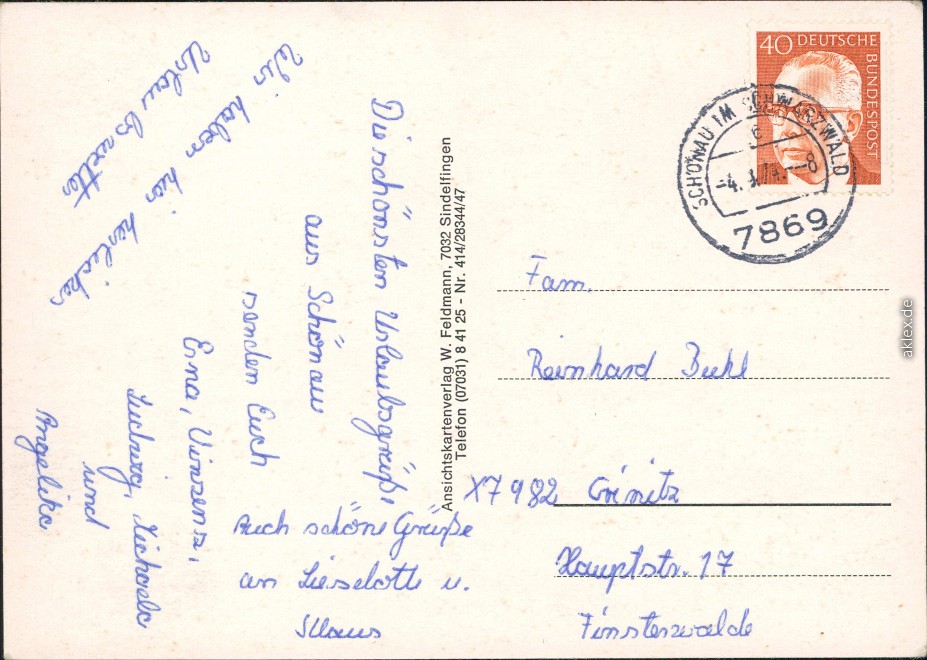 Die schönsten Urlaubsgrüße,
aus Schönau
senden Euch
Erna, Vinzenz,
Ludwig, Michaela
und
Angelika
Wir haben hier herliches
Urlaubswetter
Auch schöne Grüße
an Lieselotte u.
Klaus
Ansichtskartenverlag W. Feldmann, 7032 Sindelfingen
Telefon (07031) 8 41 25 - Nr. 414/28344/47
40 DEUTSCHE
BUNDESPOST
SCHÖNAU IM SCHWARZWALD
c
-8
7869
Fam.
Reinhard Buhl
X7982 Crinitz
Hauptstr. 17
Finsterwalde
aklex.de